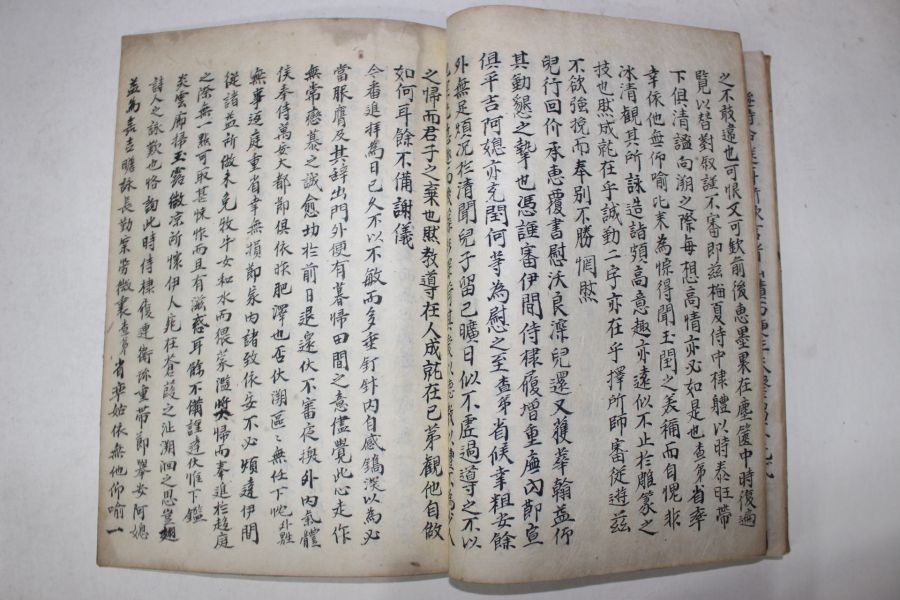 之不敢遠也可恨又可歎前後惠墨累在塵篋中時復遍
覽以替對叙謹不審即玆梅夏侍中棣體以時泰旺帶
下俱淸謐向溯之際每想高情亦必如是也査弟省率
幸依他無仰喻比來爲惊得聞玉閏之美稱而自愧非
冰淸觀其所詠造詣頗高意趣亦遠似不止於雕篆之
技也然成就在乎誠勤二字亦在乎擇所師審從遊玆
不欲強挽而奉別不勝惘然
兒行回价承惠覆書慰沃良深兒還又獲華翰益仰
其勤懇之摯也憑謹審伊間侍棣履增重廡內節宣
俱平吉阿媳亦充閏何等爲慰之至査弟省候幸粗安餘
外無足煩況於淸聞兒子留已曠日似不虛過導之不以
之帰而君子之棄也然敎導在人成就在已第觀他自做
如何耳餘不備謝儀
今番進拜爲日已久不以不敏而多垂釘針內自感鐫深以爲必
當服膺及其辞出門外便有暮帰田間之意儘覺此心走作
無常戀慕之誠愈切於前日退還伏不審夜換外內氣體
侯奉侍萬安大都節俱依昨肥澤也否伏溯區區無任下忱外甥
無事返庭重省幸無損節家內諸致依安不必煩達伊間
從諸益所做未免牧牛女和水而猥蒙濫獎帰而奉進於趨庭
之際無一點可取甚悚怍而且有滋惑耳餘不備謹達伏惟下鑑
炎雲席掃玉露微凉所懷伊人宛在蒼葭之沚溯洄之思豈
詩人之詠歎也恪詢此時侍棣履連衛弥重帶節擧安阿媳
益爲善吉瞻詠長勤槩勞微裏査弟省率姑依無他仰喻一